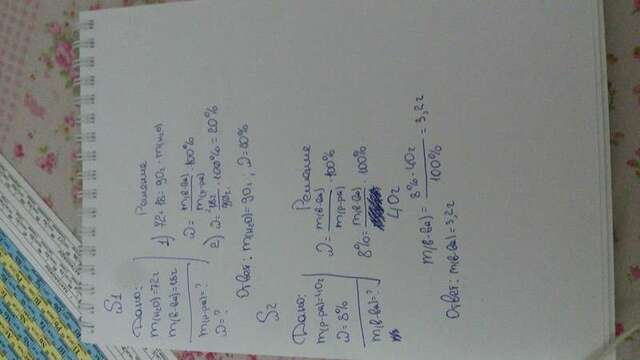 №1
Дано:
m(H₂O)=72г
m(в-ва)=18г
m(р-ра)=?
ω=?
Решение
1) 72+18=90г - m(H₂O)
ω = m(в-ва) / m(р-ра) · 100%
2) ω = 18г / 90г · 100% = 20%
Ответ: m(H₂O)=90г; ω=20%
№2
Дано:
m(р-ра)=40г
ω=8%
m(в-ва)=?
Решение
ω = m(в-ва) / m(р-ра) · 100%
8% = m(в-ва) / 40г · 100%
m(в-ва) = 8% · 40г / 100% = 3,2г
Ответ: m(в-ва)=3,2г